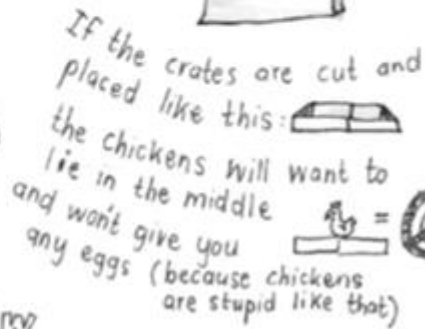 If the crates are cut and
placed like this:
the chickens will want to
lie in the middle
and won't give you
any eggs (because chickens
are stupid like that)
=